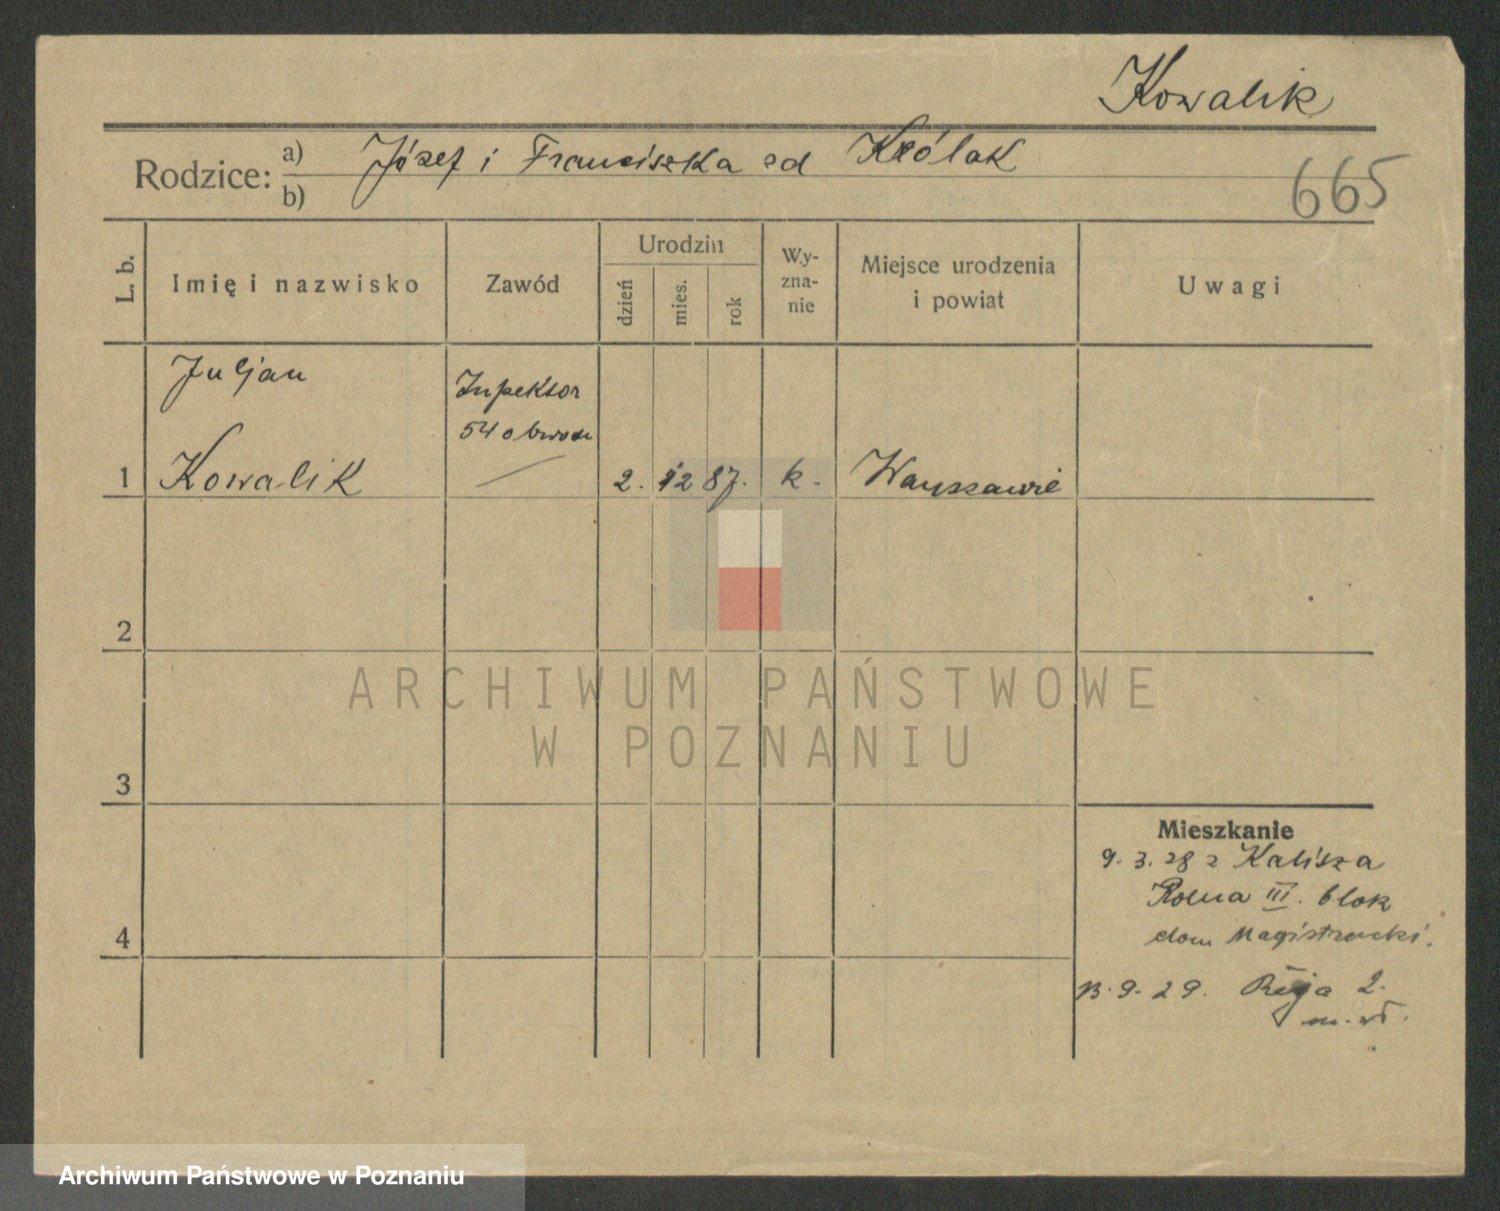 Kowalik
Rodzice: a) Józef i Franciszka od Królak
b)
665
L. b.
Imię i nazwisko
Zawód
Urodzin
dzień
mies.
rok
Wy-
zna-
nie
Miejsce urodzenia
i powiat
Uwagi
Juljan
Inspektor
54 obwodu
1 Kowalik 2. 12 87. k. Warszawie
2
3
4
ARCHIWUM PAŃSTWOWE
W POZNANIU
Mieszkanie
9. 3. 28 z Kalisza
Rolna III. blok
dom Magistracki.
13. 9. 29. Reja 2.
Archiwum Państwowe w Poznaniu